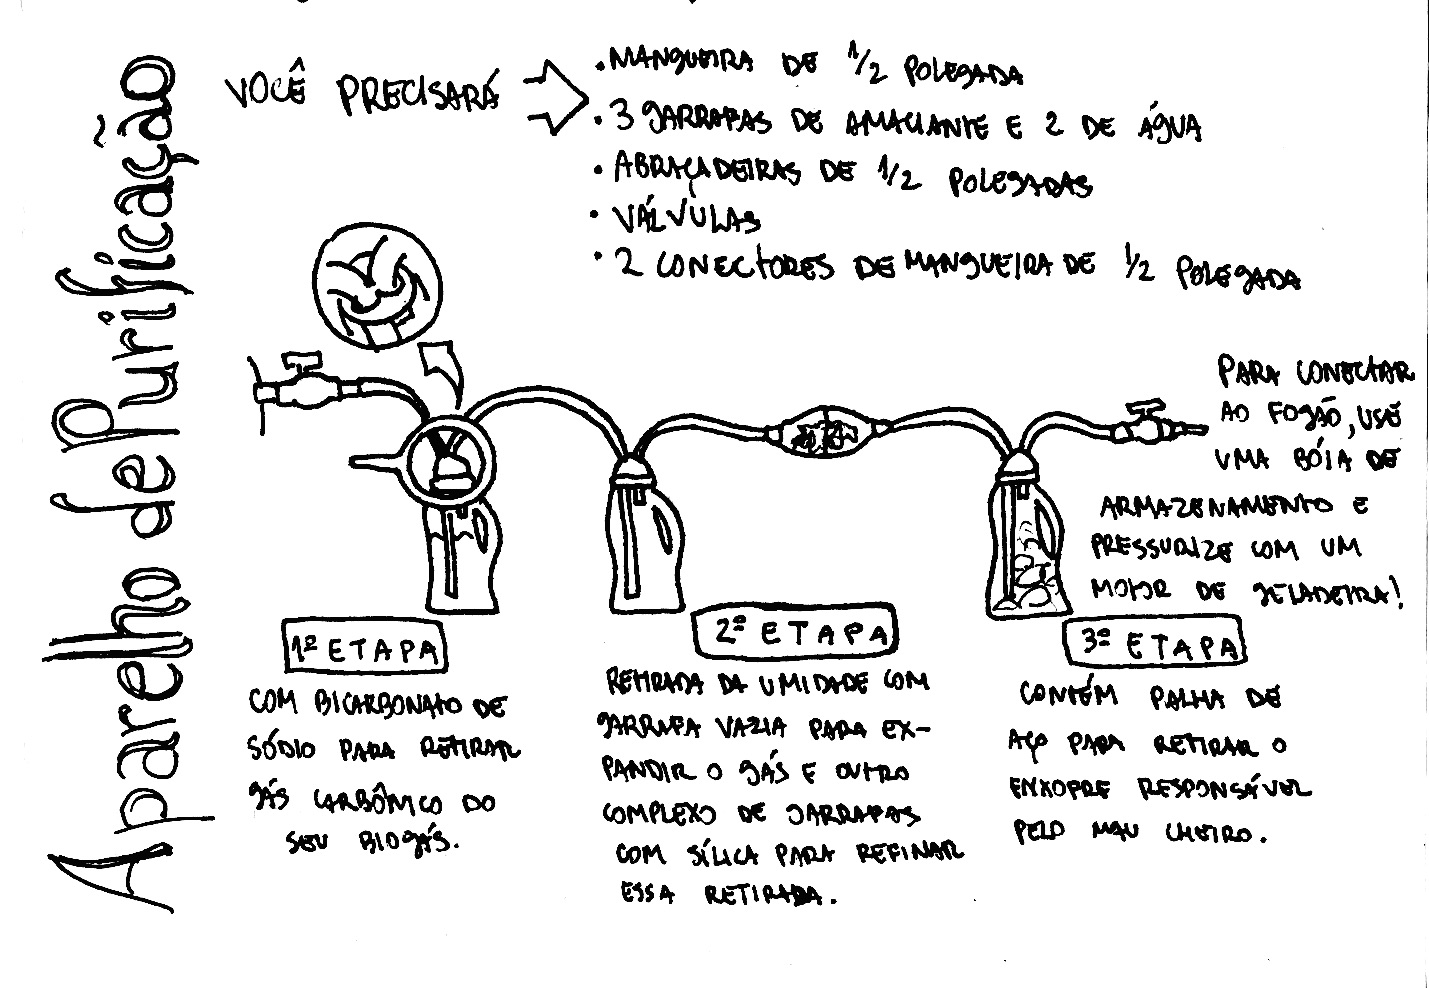 Aparelho de Purificação
VOCÊ PRECISARÁ
• MANGUEIRA DE 1/2 POLEGADA
• 3 GARRAFAS DE AMACIANTE E 2 DE ÁGUA
• ABRAÇADEIRAS DE 1/2 POLEGADAS
• VÁLVULAS
• 2 CONECTORES DE MANGUEIRA DE 1/2 POLEGADA
PARA CONECTAR
AO FOGÃO, USE
UMA BÓIA DE
ARMAZENAMENTO E
PRESSURIZE COM UM
MOTOR DE GELADEIRA!
1ª ETAPA
COM BICARBONATO DE
SÓDIO PARA RETIRAR
GÁS CARBÔNICO DO
SEU BIOGÁS.
2ª ETAPA
RETIRADA DA UMIDADE COM
GARRAFA VAZIA PARA EX-
PANDIR O GÁS E OUTRO
COMPLEXO DE GARRAFAS
COM SÍLICA PARA REFINAR
ESSA RETIRADA.
3ª ETAPA
CONTÉM PALHA DE
AÇO PARA RETIRAR O
ENXOFRE RESPONSÁVEL
PELO MAU CHEIRO.